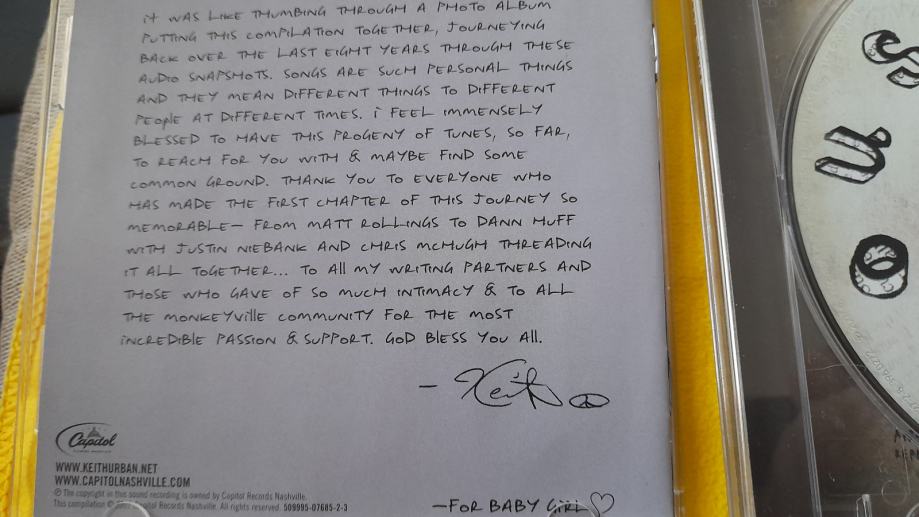 iT WAS LIKE THUMBING THROUGH A PHOTO ALBUM
PUTTING THIS COMPILATION TOGETHER, JOURNEYING
BACK OVER THE LAST EIGHT YEARS THROUGH THESE
AUDIO SNAPSHOTS. SONGS ARE SUCH PERSONAL THINGS
AND THEY MEAN DIFFERENT THINGS TO DIFFERENT
PEOPLE AT DIFFERENT TIMES. i FEEL IMMENSELY
BLESSED TO HAVE THIS PROGENY OF TUNES, SO FAR,
TO REACH FOR YOU WITH & MAYBE FIND SOME
COMMON GROUND. THANK YOU TO EVERYONE WHO
HAS MADE THE FIRST CHAPTER OF THIS JOURNEY SO
MEMORABLE— FROM MATT ROLLINGS TO DANN HUFF
WITH JUSTIN NIEBANK AND CHRIS MCHUGH THREADING
IT ALL TOGETHER... TO All MY WRITING PARTNERS AND
THOSE WHO GAVE OF SO MUCH INTIMACY & TO ALL
THE MONKEYVILLE COMMUNITY FOR THE MOST
INCREDIBLE PASSION & SUPPORT. GOD BLESS YOU All.
— Keith
Capitol
WWW.KEITHURBAN.NET
WWW.CAPITOLNASHVILLE.COM
℗ The copyright in this sound recording is owned by Capitol Records Nashville.
This compilation © Capitol Records Nashville. All rights reserved. 509995-07685-2-3
—FOR BABY GIRL♡
S
n
o